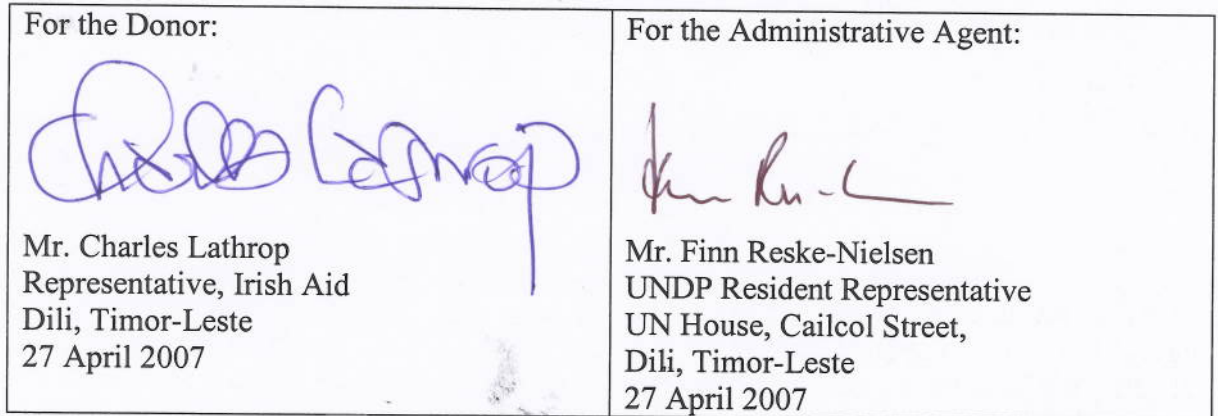 For the Donor:
Charles Lathrop
Mr. Charles Lathrop
Representative, Irish Aid
Dili, Timor-Leste
27 April 2007
For the Administrative Agent:
Mr. Finn Reske-Nielsen
UNDP Resident Representative
UN House, Cailcol Street,
Dili, Timor-Leste
27 April 2007